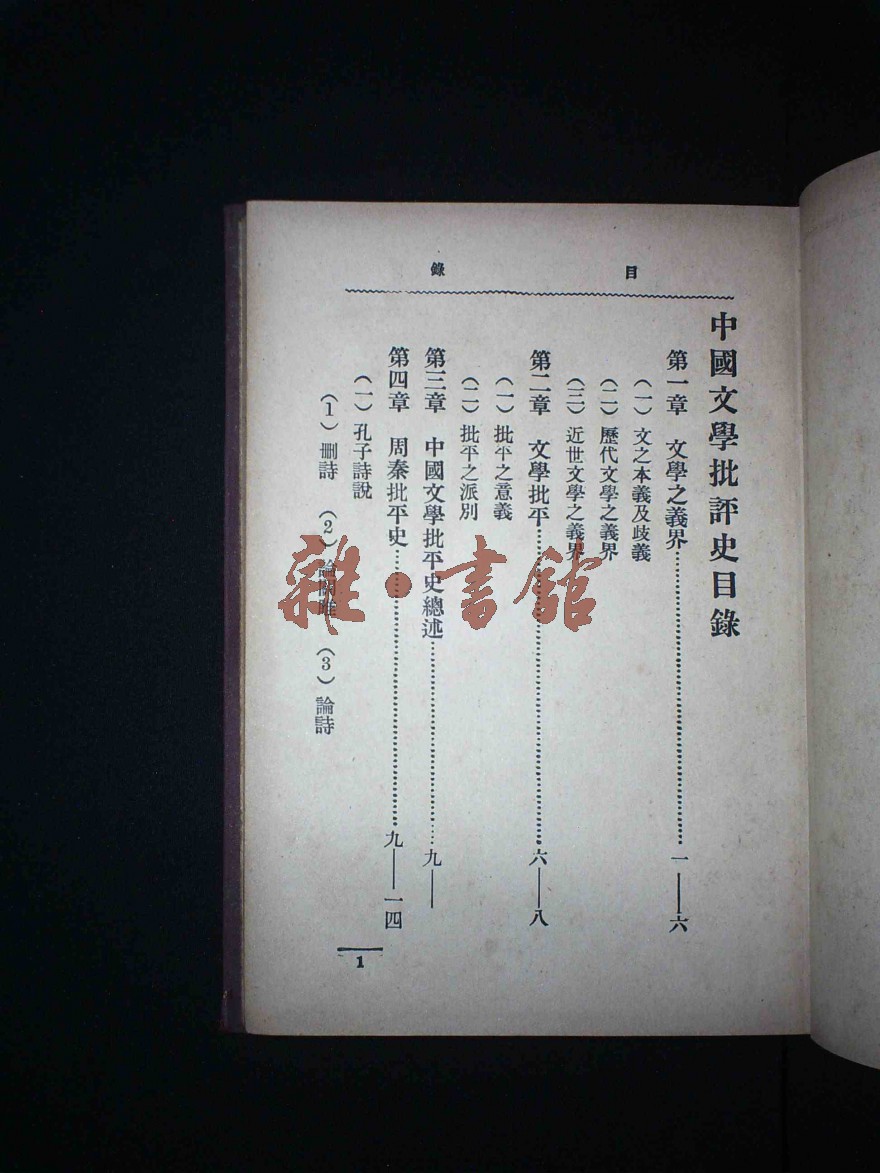 目錄
中國文學批評史目錄
第一章 文學之義界……一——六
(一)文之本義及歧義
(二)歷代文學之義界
(三)近世文學之義界
第二章 文學批平……六——八
(一)批平之意義
(二)批平之派別
第三章 中國文學批平史總述……九——
第四章 周秦批平史……九——一四
(一)孔子詩說
(1)删詩 (2)論關雎 (3)論詩
1
雜·書館